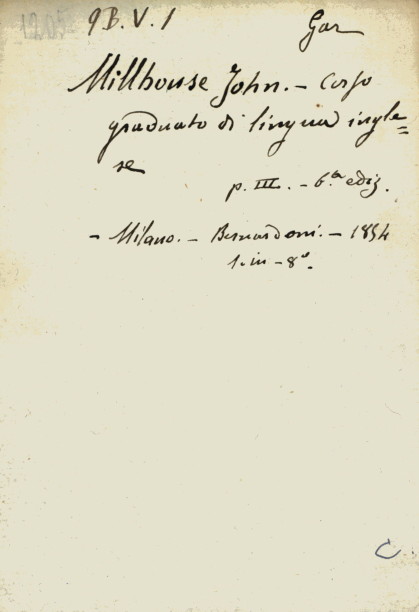 1205
9B.V.1
Gar
Millhouse John. - Corso
graduato di lingua ingle=
se
p. III. - 6.ta ediz.
- Milano. - Bernardoni. - 1854
1. in - 8°.
C